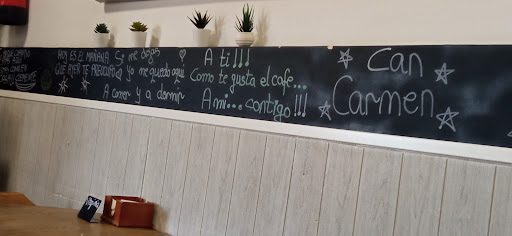 HOY ES EL MAÑANA
QUE AYER TE PREOCUPABA
Si me dejas
Yo me quedo aquí
A comer y a dormir
A ti!!!
Como te gusta el cafe...
A mi... contigo!!!
Can
Carmen